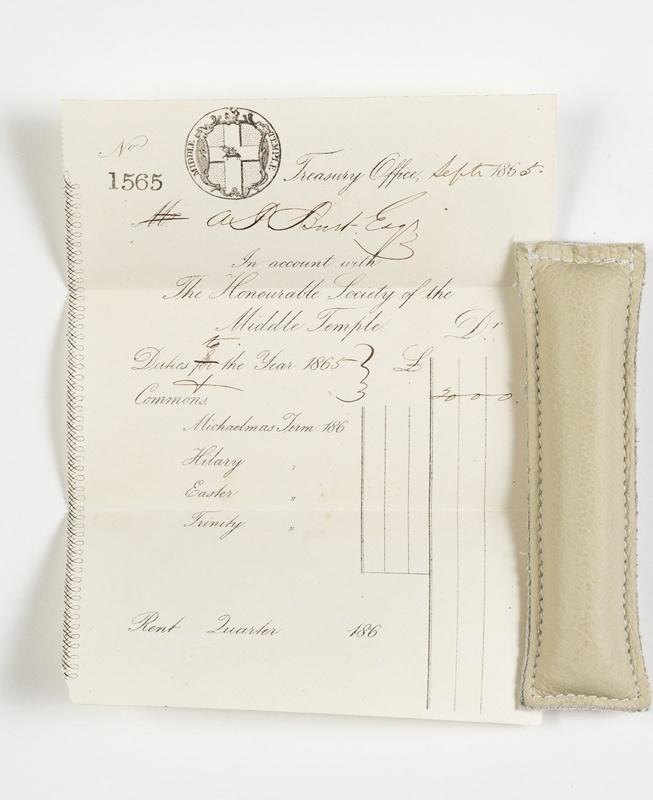 No
1565
MIDDLE TEMPLE
Treasury Office, Septr 1865.
Mr A Burt Esqr
In account with
The Honourable Society of the
Middle Temple Dr
Duties for to the Year 1865 £
& Commons. 20 0 0.
Michaelmas Term 186
Hilary "
Easter "
Trinity "
Rent Quarter 186